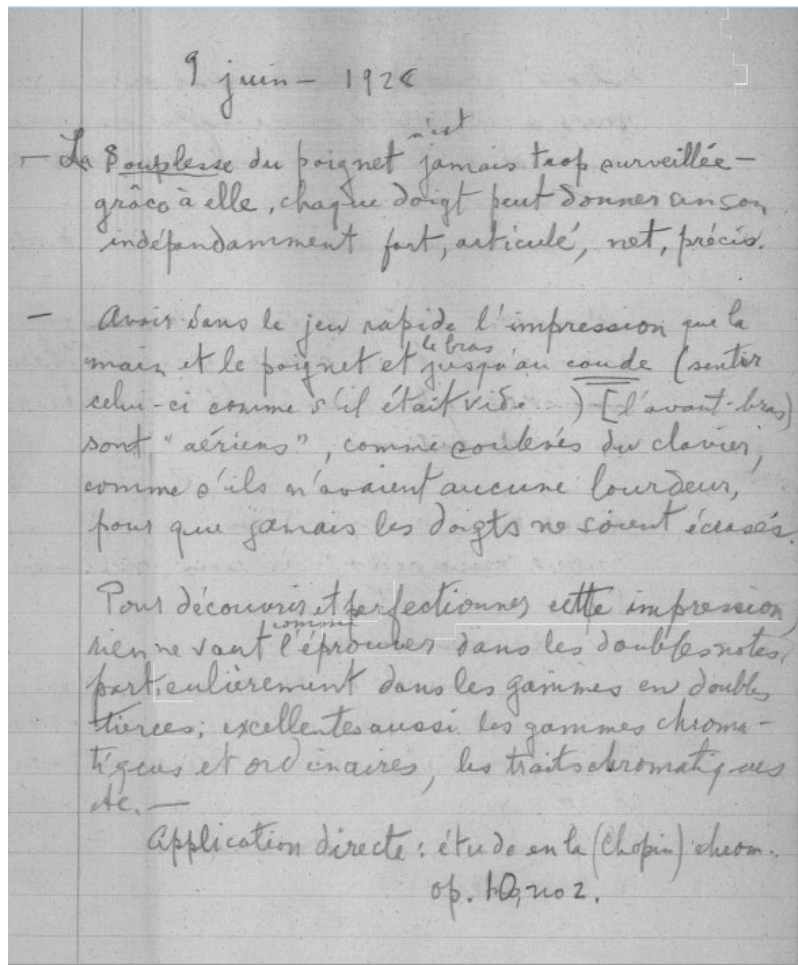 9 juin - 192
n'est
- La Souplesse du poignet jamais trop surveillée -
grâce à elle, chaque doigt peut donner un son
indépendamment fort, articulé, net, précis.
- Avoir dans le jeu rapide l'impression que la
le bras
main et le poignet et jusqu'au coude (sentir
celui-ci comme s'il était vide ) [l'avant-bras)
sont "aériens", comme soulevés du clavier,
comme s'ils n'avaient aucune lourdeur,
pour que jamais les doigts ne soient écrasés.
Pour découvrir et perfectionner cette impression,
comme
rien ne vaut l'éprouver dans les doubles notes,
particulièrement dans les gammes en doubles
tierces; excellentes aussi les gammes chroma-
tiques et ordinaires, les traits chromatiques
etc. -
Application directe : étude en la (Chopin) chrom.
op. 10, no 2.